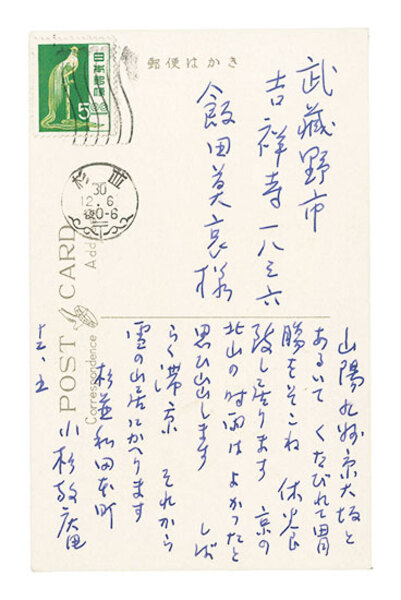 郵便はかき
日本郵便
5 00
杉並
30
12.6
後0-6
武蔵野市
吉祥寺一八三六
飯田莫哀様
POST CARD
Correspondence
Add
山陽九州京大坂と
あるいてくたびれて胃
腸をそこね 休養
致し居ります 京の
北山の時雨はよかつたと
思ひ出します しば
らく滞京 それから
雪の山居にかへります
杉並和田本町
小杉放庵
十二、五